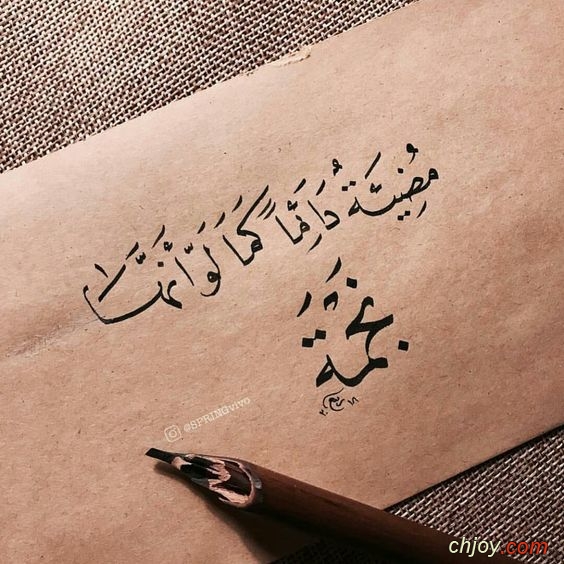 مُضِيئَة دَائِمًا كَمَا لَوْ أَنَّهَا
نَجْمَة
@SPRINGvivo
chjoy.com